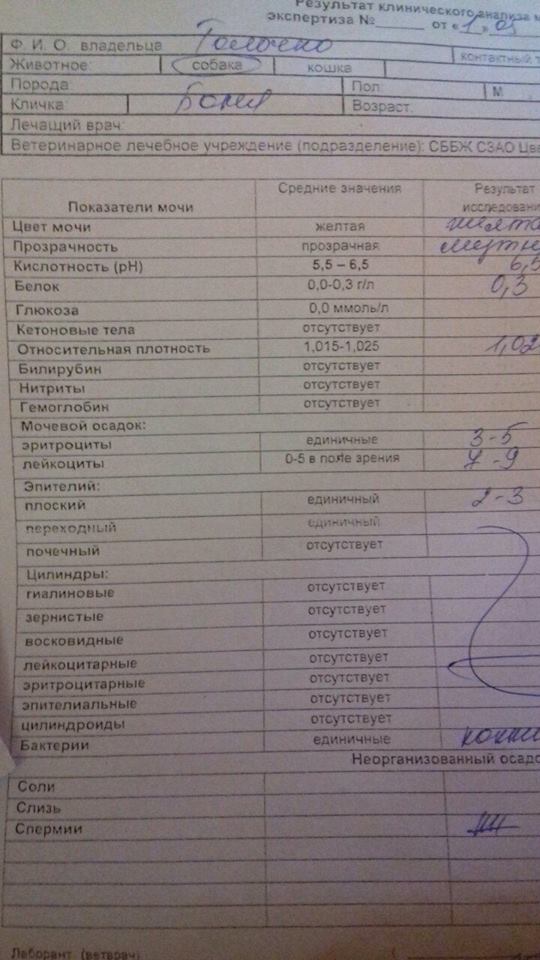 Результат клинического анализа м
экспертиза № от « 1 » 03
Ф. И. О. владельца Толочко
контактный т
Животное: собака кошка
Порода: Пол: М
Кличка: Боня Возраст:
Лечащий врач:
Ветеринарное лечебное учреждение (подразделение): СББЖ СЗАО Цве
Показатели мочи Средние значения Результат исследовани
Цвет мочи желтая желта
Прозрачность прозрачная мутн
Кислотность (pH) 5,5 – 6,5 6,5
Белок 0,0-0,3 г/л 0,3
Глюкоза 0,0 ммоль/л
Кетоновые тела отсутствует
Относительная плотность 1,015-1,025 1,02
Билирубин отсутствует
Нитриты отсутствует
Гемоглобин отсутствует
Мочевой осадок:
эритроциты единичные 3-5
лейкоциты 0-5 в поле зрения 7-9
Эпителий:
плоский единичный 2-3
переходный единичный
почечный отсутствует
Цилиндры:
гиалиновые отсутствует
зернистые отсутствует
восковидные отсутствует
лейкоцитарные отсутствует
эритроцитарные отсутствует
эпителиальные отсутствует
цилиндроиды отсутствует
Бактерии единичные кокки
Неорганизованный осадо
Соли
Слизь
Спермии
Лаборант (ветврач)